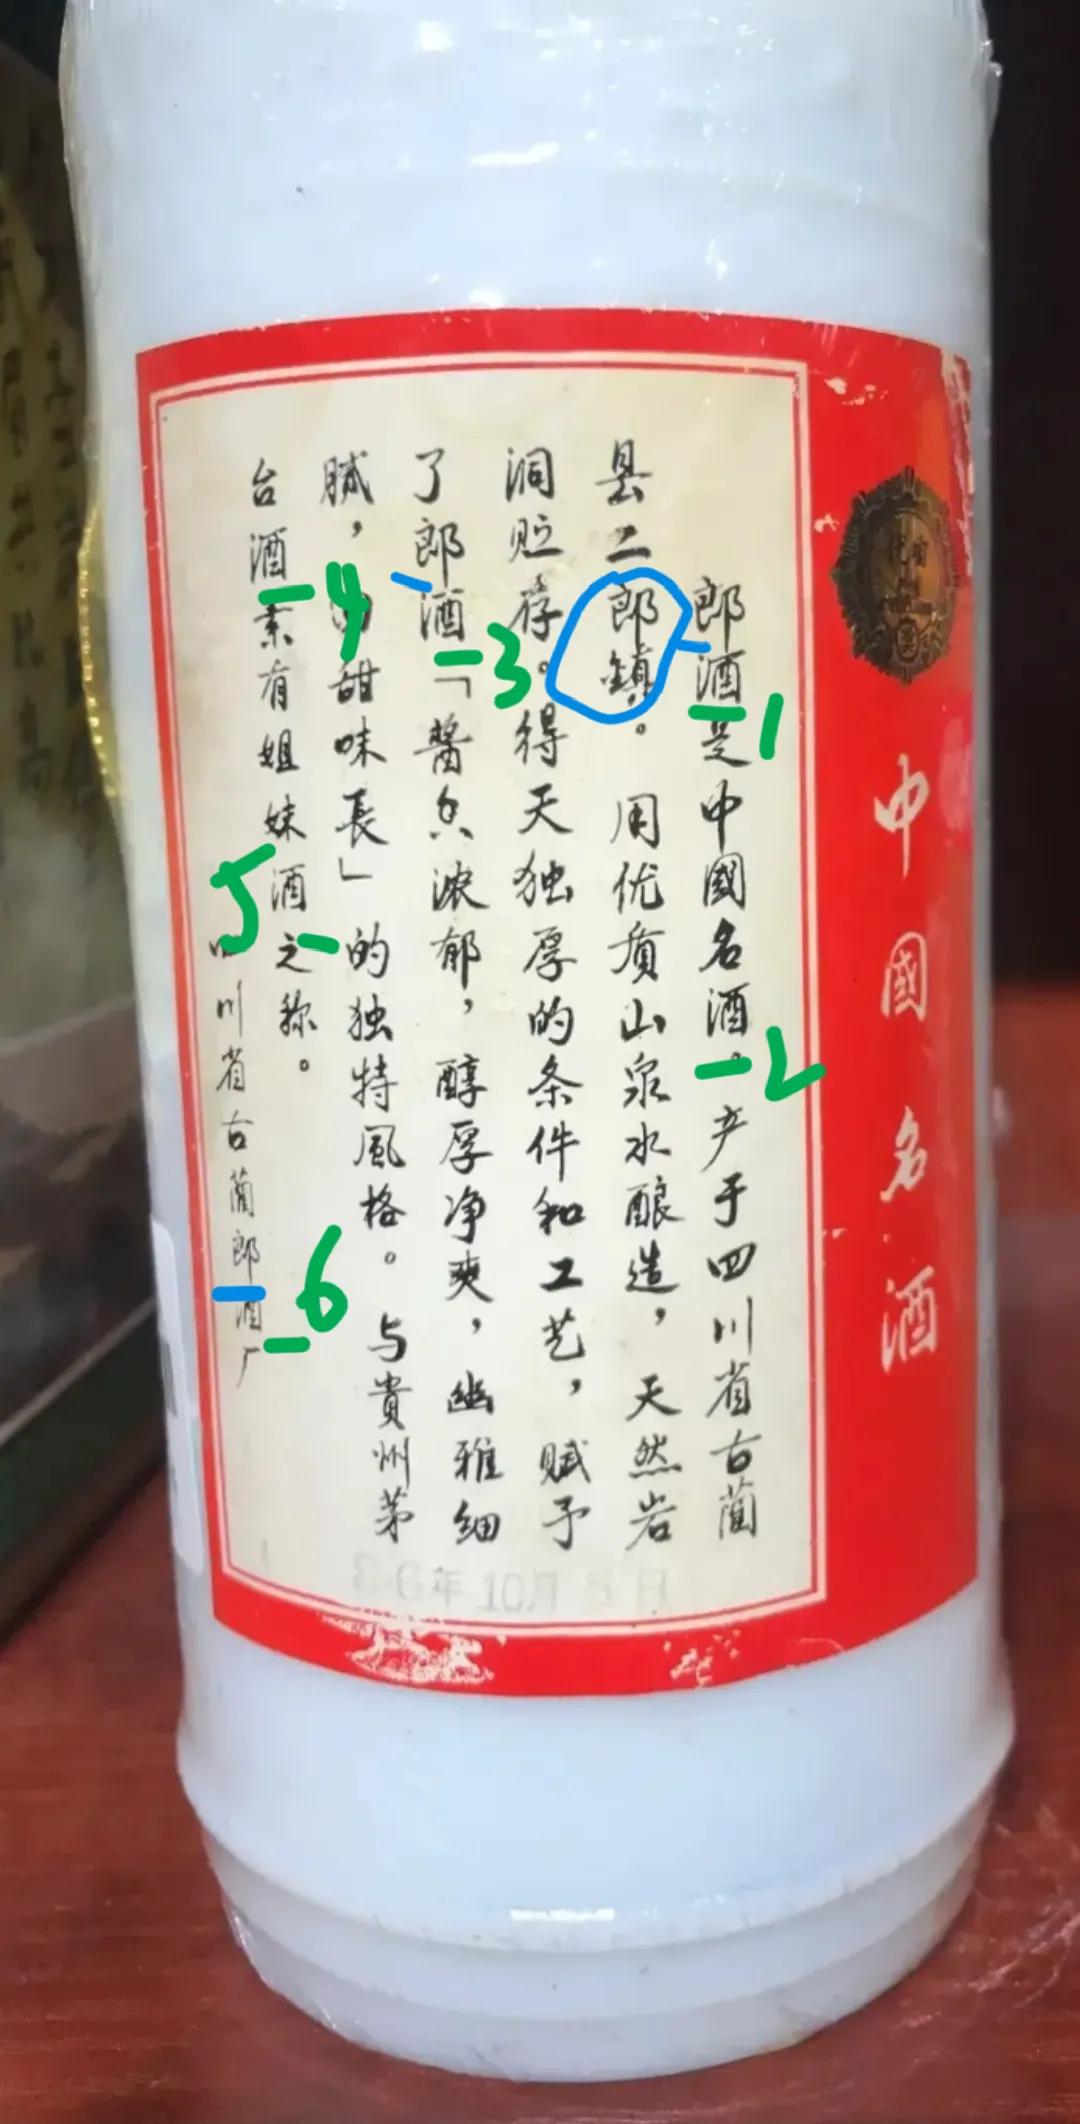 中國名酒
郎酒是中國名酒。产于四川省古蔺
县二郎鎮。用优质山泉水酿造，天然岩
洞贮存。得天独厚的条件和工艺，赋予
了郎酒「醬香浓郁，醇厚净爽，幽雅细
腻，回甜味長」的独特風格。与貴州茅
台酒素有姐妹酒之称。
四川省古蔺郎酒厂
86年10月5日
1
2
3
4
5
6